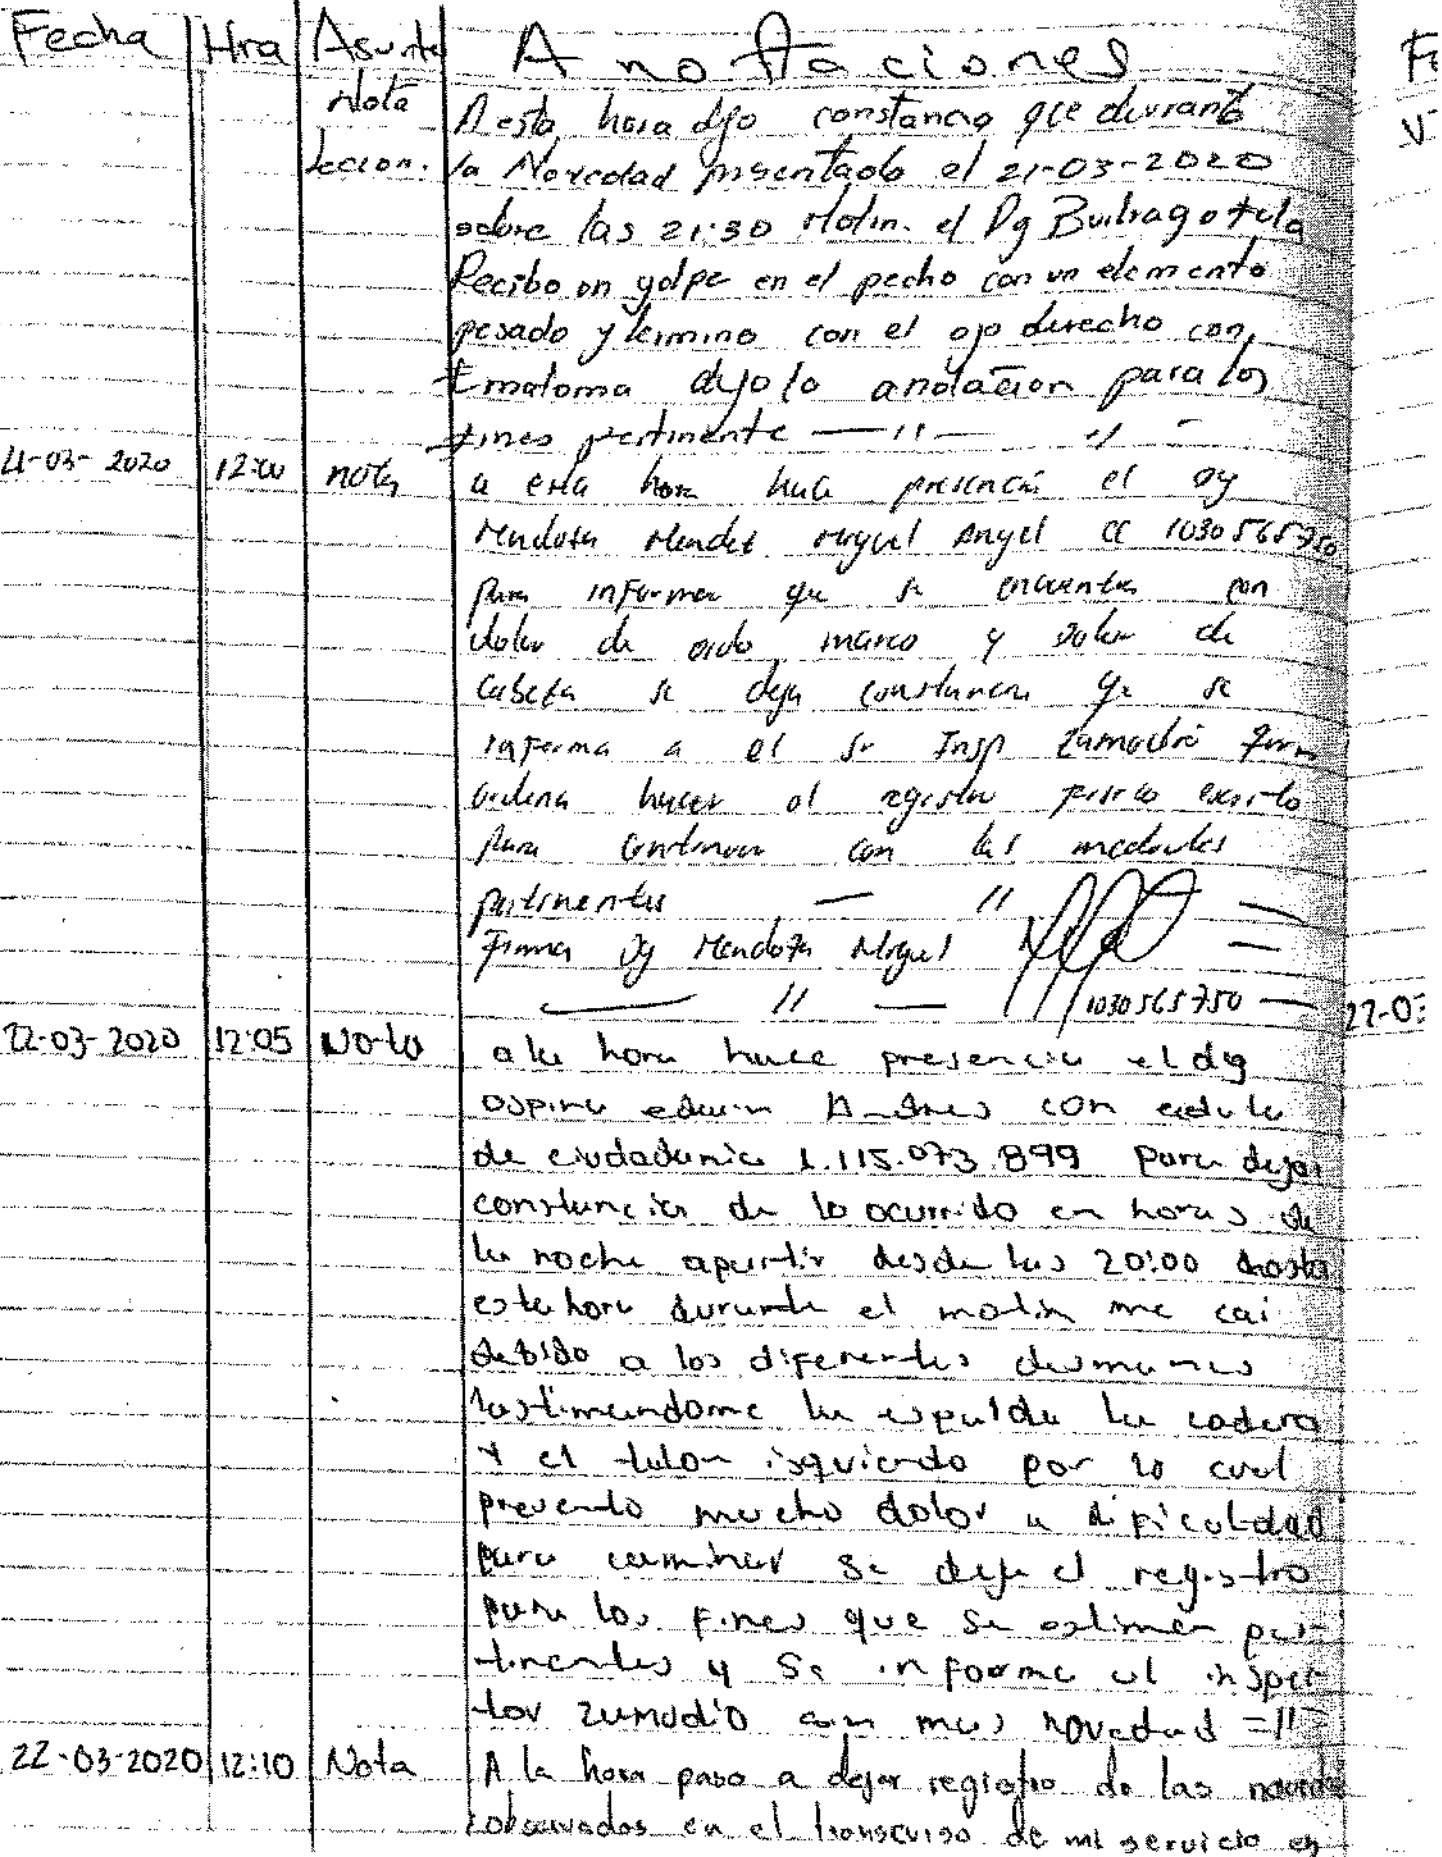 Fecha Hra Asunto Anotaciones
Nota A esta hora dejo constancia que durante
Leccion. la Novedad presentado el 21-03-2020
sobre las 21:30 Motin. el Dg Buitrago
Recibo un golpe en el pecho con un elemento
pesado y termino con el ojo derecho con
Ematoma dejo la anotacion para los
fines pertinente — " — "
21-03-2020 12:00 nota a esta hora hace presencia el Dg
Mendoza Mendez Miguel Angel CC 1030565750
para informar que se encuentra con
dolor de oido mareo y dolor de
Cabeza se deja constancia que se
informa a el Sr Insp Zamudio
ordena hacer el registro escrito
para continuar con las medidas
pertinentes — "
Firma Dg Mendoza Miguel
— " — 1030565750 —
22-03
22-03-2020 12:05 Nota a la hora hace presencia el dg
ospina edwin Andres con cedula
de ciudadania 1.115.073.899 para dejar
constancia de lo ocurrido en horas de
la noche apartir desde las 20:00 hasta
esta hora durante el motin me cai
debido a los diferentes desmanes
lastimandome la espalda la cadera
y el talon isquierdo por lo cual
presento mucho dolor a dificultad
para caminar se deja el registro
para los fines que se estimen per-
tinentes y se informa al inspec-
tor zamudio con mas novedad ="=
22-03-2020 12:10 Nota A la hora paso a dejar registro de las
observados en el transcurso de mi servicio en